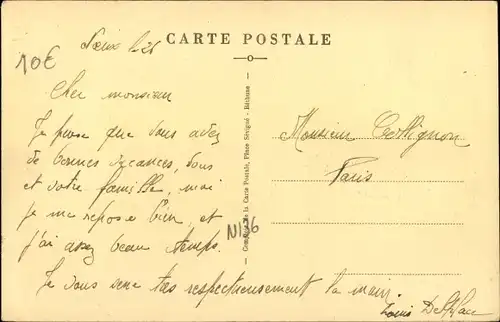 CARTE POSTALE
le 25
10€
Cher monsieur
Je pense que vous avez
de bonnes vacances, vous
et votre famille, moi
je me repose bien, et
j'ai assez beau temps.
Je vous serre tas respectueusement la main
Louis
Monsieur Cottignon
Paris
N136
de la Carte Postale, Place Sévigné - Béthune